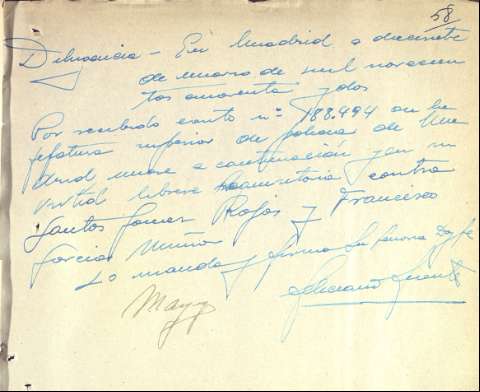 58
Diligencia - En Madrid a diecisiete
de marzo de mil novecien
tos cuarenta y dos
Por recibido escrito nº 188.494 de la
Jefatura superior de policia de Ma
drid unase a continuación y en su
virtud librese Requisitoria contra
Santos Gomez Rojas y Francisco
Garcia Muñoz
Lo manda y firma Su Señoria Doy fe